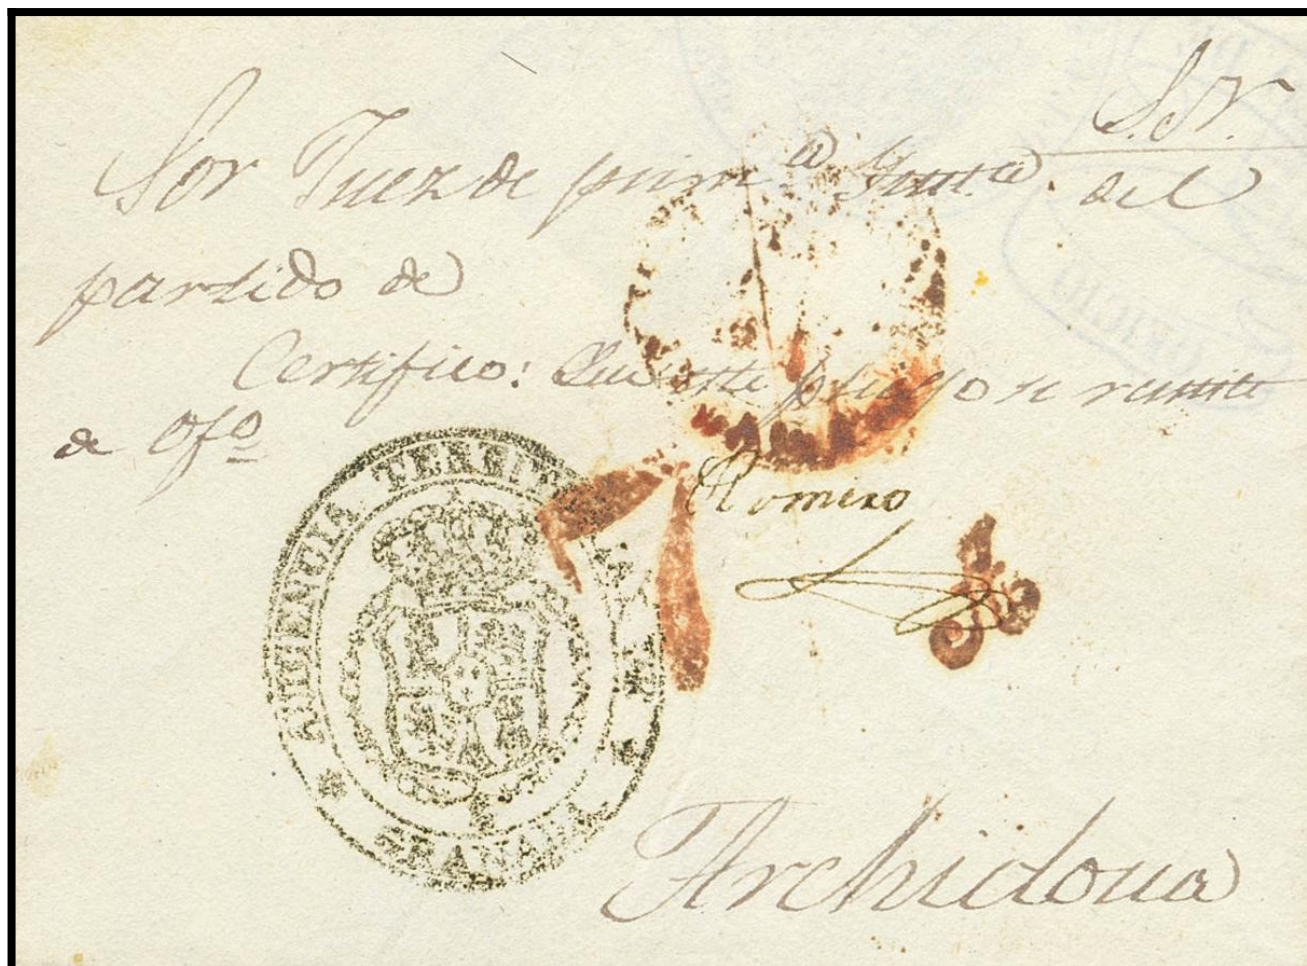 S.N.
Sor Juez de prim.a Inst.a del
partido de
Certifico: Que este pliego se remite
de Ofo
Romero
AUDIENCIA TERRITORIAL DE
GRANADA
Archidona
OFICIO